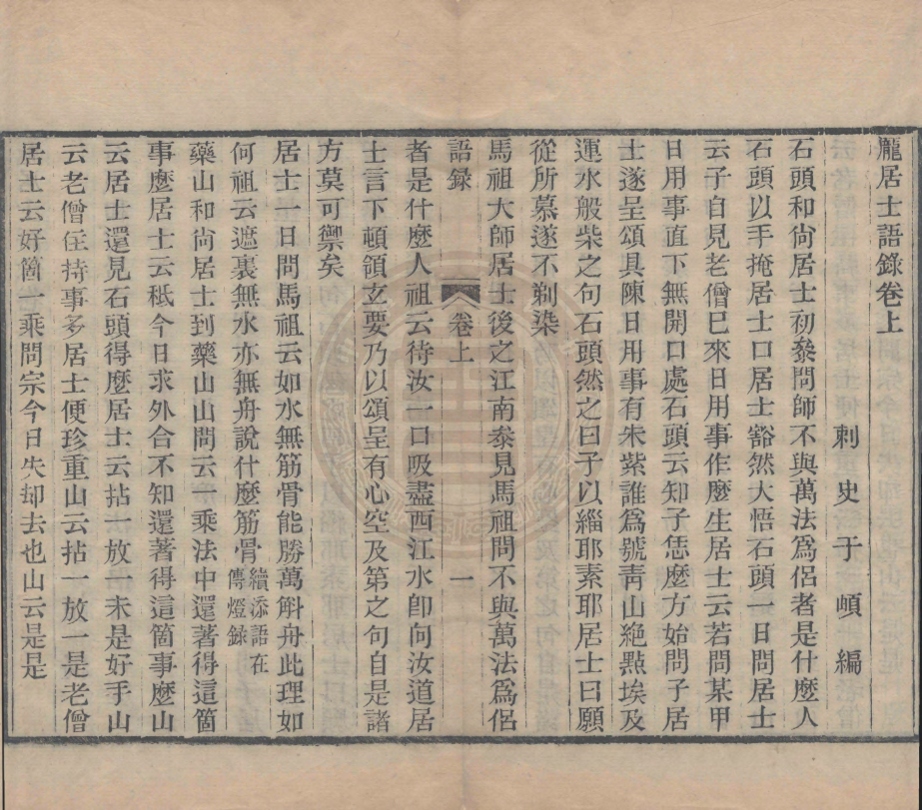 龐居士語錄卷上
刺史于頔編
石頭和尙居士初叅問師不與萬法爲侶者是什麼人
石頭以手掩居士口居士豁然大悟石頭一日問居士
云子自見老僧巳來日用事作麼生居士云若問某甲
日用事直下無開口處石頭云知子恁麼方始問子居
士遂呈頌具陳日用事有朱紫誰爲號靑山絶點埃及
運水般柴之句石頭然之曰子以緇耶素耶居士曰願
從所慕遂不剃染
馬祖大師居士後之江南叅見馬祖問不與萬法爲侶
語録 卷上 一
者是什麼人祖云待汝一口吸盡西江水卽向汝道居
士言下頓領玄要乃以頌呈有心空及第之句自是諸
方莫可禦矣
居士一日問馬祖云如水無筋骨能勝萬斛舟此理如
何祖云遮裏無水亦無舟說什麼筋骨續添語在傳燈錄
藥山和尙居士到藥山山問云一乘法中還著得這箇
事麼居士云秪今日求外合不知還著得這箇事麼山
云居士還見石頭得麼居士云拈一放一未是好手山
云老僧住持事多居士便珍重山云拈一放一是老僧
居士云好箇一乘問宗今日失却去也山云是是